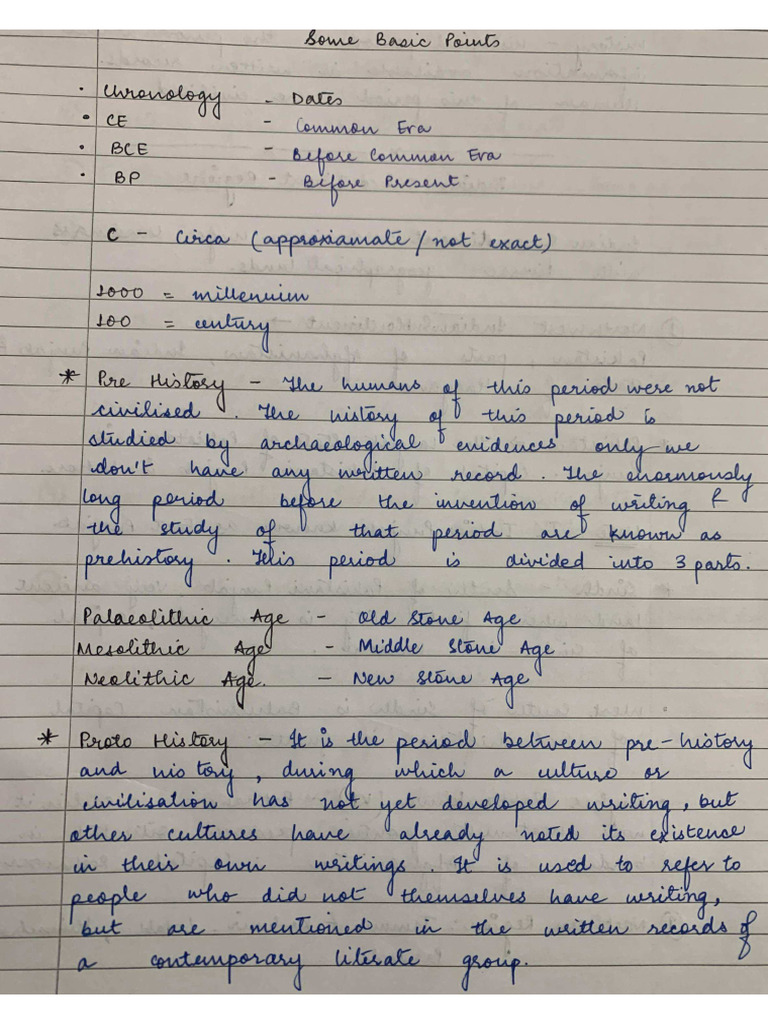 Some Basic Points
• Chronology - Dates
• CE - Common Era
• BCE - Before Common Era
• BP - Before Present
C - Circa (approxiamate / not exact)
1000 = millennium
100 = century
* Pre History - The humans of this period were not
civilised. The history of this period is
studied by archaeological evidences only we
don't have any written record. The enormously
long period before the invention of writing &
the study of that period are known as
prehistory. This period is divided into 3 parts.
Palaeolithic Age - Old Stone Age
Mesolithic Age - Middle Stone Age
Neolithic Age. - New Stone Age
* Proto History - It is the period between pre-history
and history, during which a culture or
civilisation has not yet developed writing, but
other cultures have already noted its existence
in their own writings. It is used to refer to
people who did not themselves have writing,
but are mentioned in the written records of
a contemporary literate group.